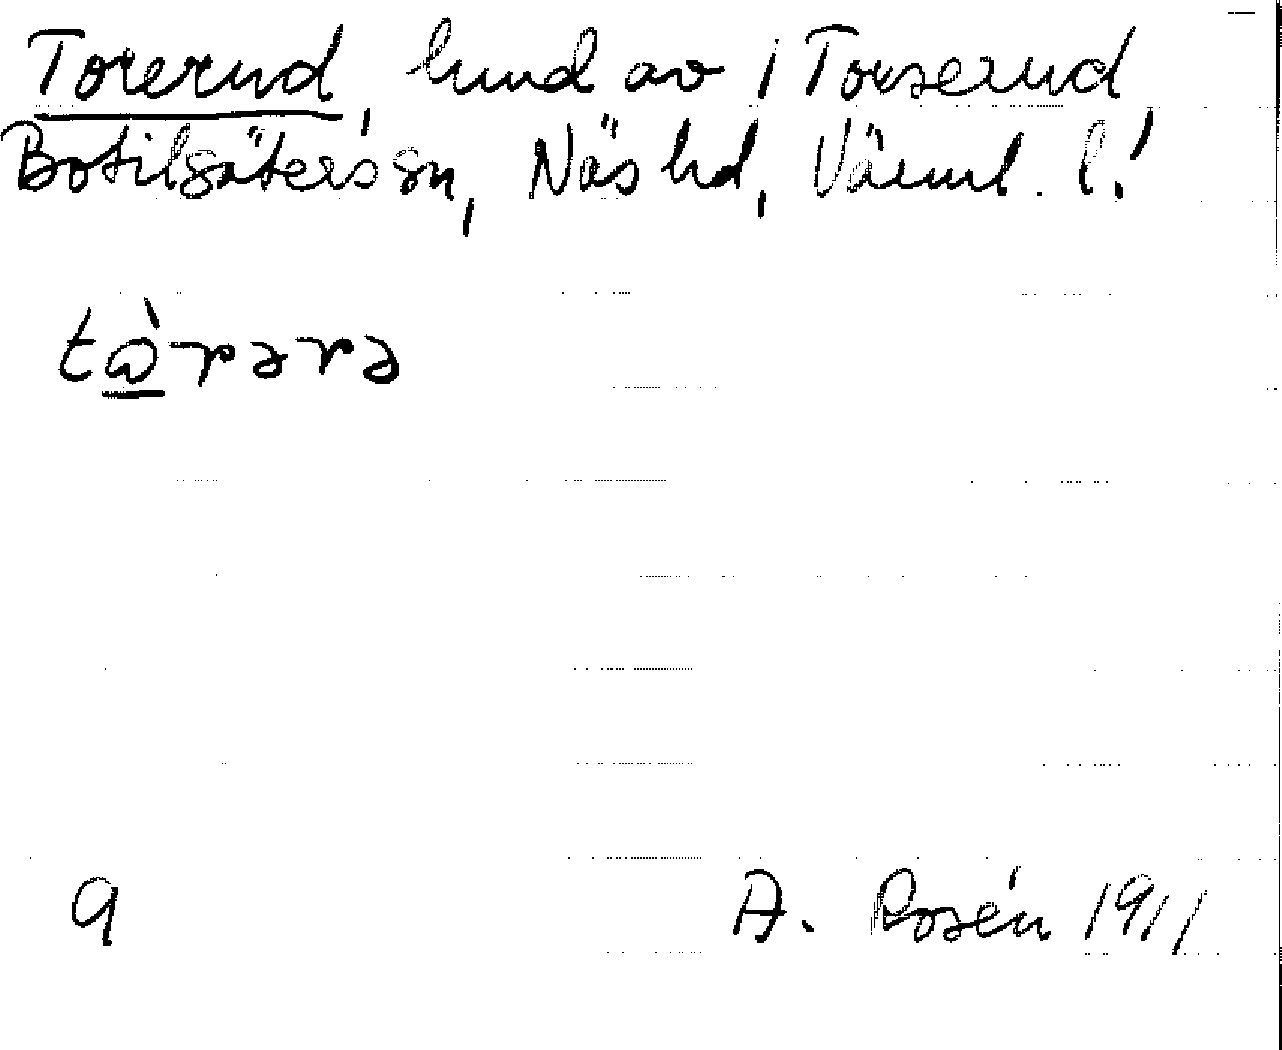 Torerud, hmd av i Torserud
Botilsäters sn, Näs hd, Värml. l.!
tò̲rərə
a A. Rosén 1911